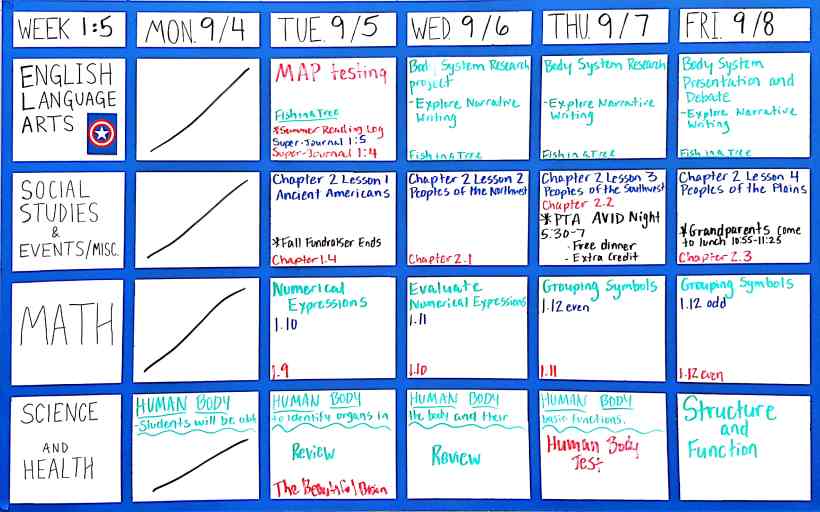 WEEK 1:5
MON. 9/4
TUE. 9/5
WED 9/6
THU. 9/7
FRI. 9/8
ENGLISH
LANGUAGE
ARTS
MAP testing
Fish in a Tree
*Summer Reading Log
Super-Journal 1:5
Super-Journal 1:4
Body System Research
project
-Explore Narrative
Writing
Fish in a Tree
Body System Research
-Explore Narrative
Writing
Fish in a Tree
Body System
Presentation and
Debate
-Explore Narrative
Writing
Fish in a Tree
SOCIAL
STUDIES
&
EVENTS/MISC.
Chapter 2 Lesson 1
Ancient Americans
*Fall Fundraiser Ends
Chapter 1.4
Chapter 2 Lesson 2
Peoples of the Northwest
Chapter 2.1
Chapter 2 Lesson 3
Peoples of the Southwest
Chapter 2.2
*PTA AVID Night
5:30-7
- Free dinner
- Extra Credit
Chapter 2 Lesson 4
Peoples of the Plains
*Grandparents come
to lunch 10:55-11:25
Chapter 2.3
MATH
Numerical
Expressions
1.10
1.9
Evaluate
Numerical Expressions
1.11
1.10
Grouping Symbols
1.12 even
1.11
Grouping Symbols
1.12 odd
1.12 even
SCIENCE
AND
HEALTH
HUMAN BODY
-Students will be able
HUMAN BODY
to identify organs in
Review
The Beautiful Brain
HUMAN BODY
the body and their
Review
HUMAN BODY
basic functions.
Human Body
Test
Structure
and
Function